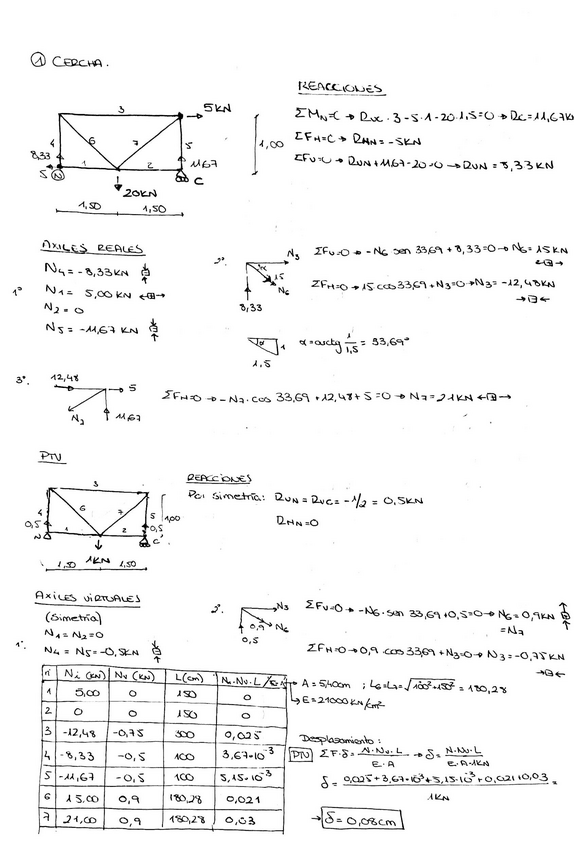 ① CERCHA.
REACCIONES
3
5KN
ΣM_N=0 → R_VC · 3 - 5·1 - 20·1,5=0 → R_C=11,67K
4
6
7
5
1,00
ΣF_H=0 → R_HN = -5KN
8,33
1
2
11,67
ΣF_V=0 → R_VN+11,67-20=0 → R_VN = 8,33KN
5
N
C
20KN
1,50
1,50
AXILES REALES
1º
N4 = -8,33KN
N1 = 5,00KN
N2 = 0
N5 = -11,67 KN
2º.
N3
α
15
N6
8,33
ΣF_V=0 → -N6 sen 33,69 + 8,33=0 → N6=15KN
ΣF_H=0 → 15 cos 33,69 + N3=0 → N3=-12,48KN
α
1
1,5
α=arctg 1/1,5 = 33,69º
3º.
12,48
5
N7
11,67
ΣF_H=0 → -N7·cos 33,69 + 12,48 + 5=0 → N7=21KN
PTV
REACCIONES
3
Por simetría: R_VN = R_VC = -1/2 = 0,5KN
4
6
7
5
1,00
R_HN=0
0,5
1
2
0,5
N
C
1KN
1,50
1,50
AXILES VIRTUALES
(Simetría)
1º.
N1 = N2=0
N4 = N5=-0,5KN
2º.
N3
0,9
N6
0,5
ΣF_V=0 → -N6·sen 33,69+0,5=0 → N6=0,9KN
=N7
ΣF_H=0 → 0,9·cos 33,69+N3=0 → N3=-0,75KN
nº Ni (KN) Nv (KN) L(cm) Ni·Nv·L/E·A
1 5,00 0 150 0
2 0 0 150 0
3 -12,48 -0,75 300 0,025
4 -8,33 -0,5 100 3,67·10⁻³
5 -11,67 -0,5 100 5,15·10⁻³
6 15,00 0,9 180,28 0,021
7 21,00 0,9 180,28 0,03
A = 5,40cm ; L6=L7=√100²+150² = 180,28
E=21000KN/cm²
Desplasamiento:
PTV ΣF·δ = N·Nv·L / E·A → δ = N·Nv·L / E·A·1KN
δ = 0,025+3,67·10⁻³+5,15·10⁻³+0,021+0,03 / 1KN =
→ δ = 0,08cm